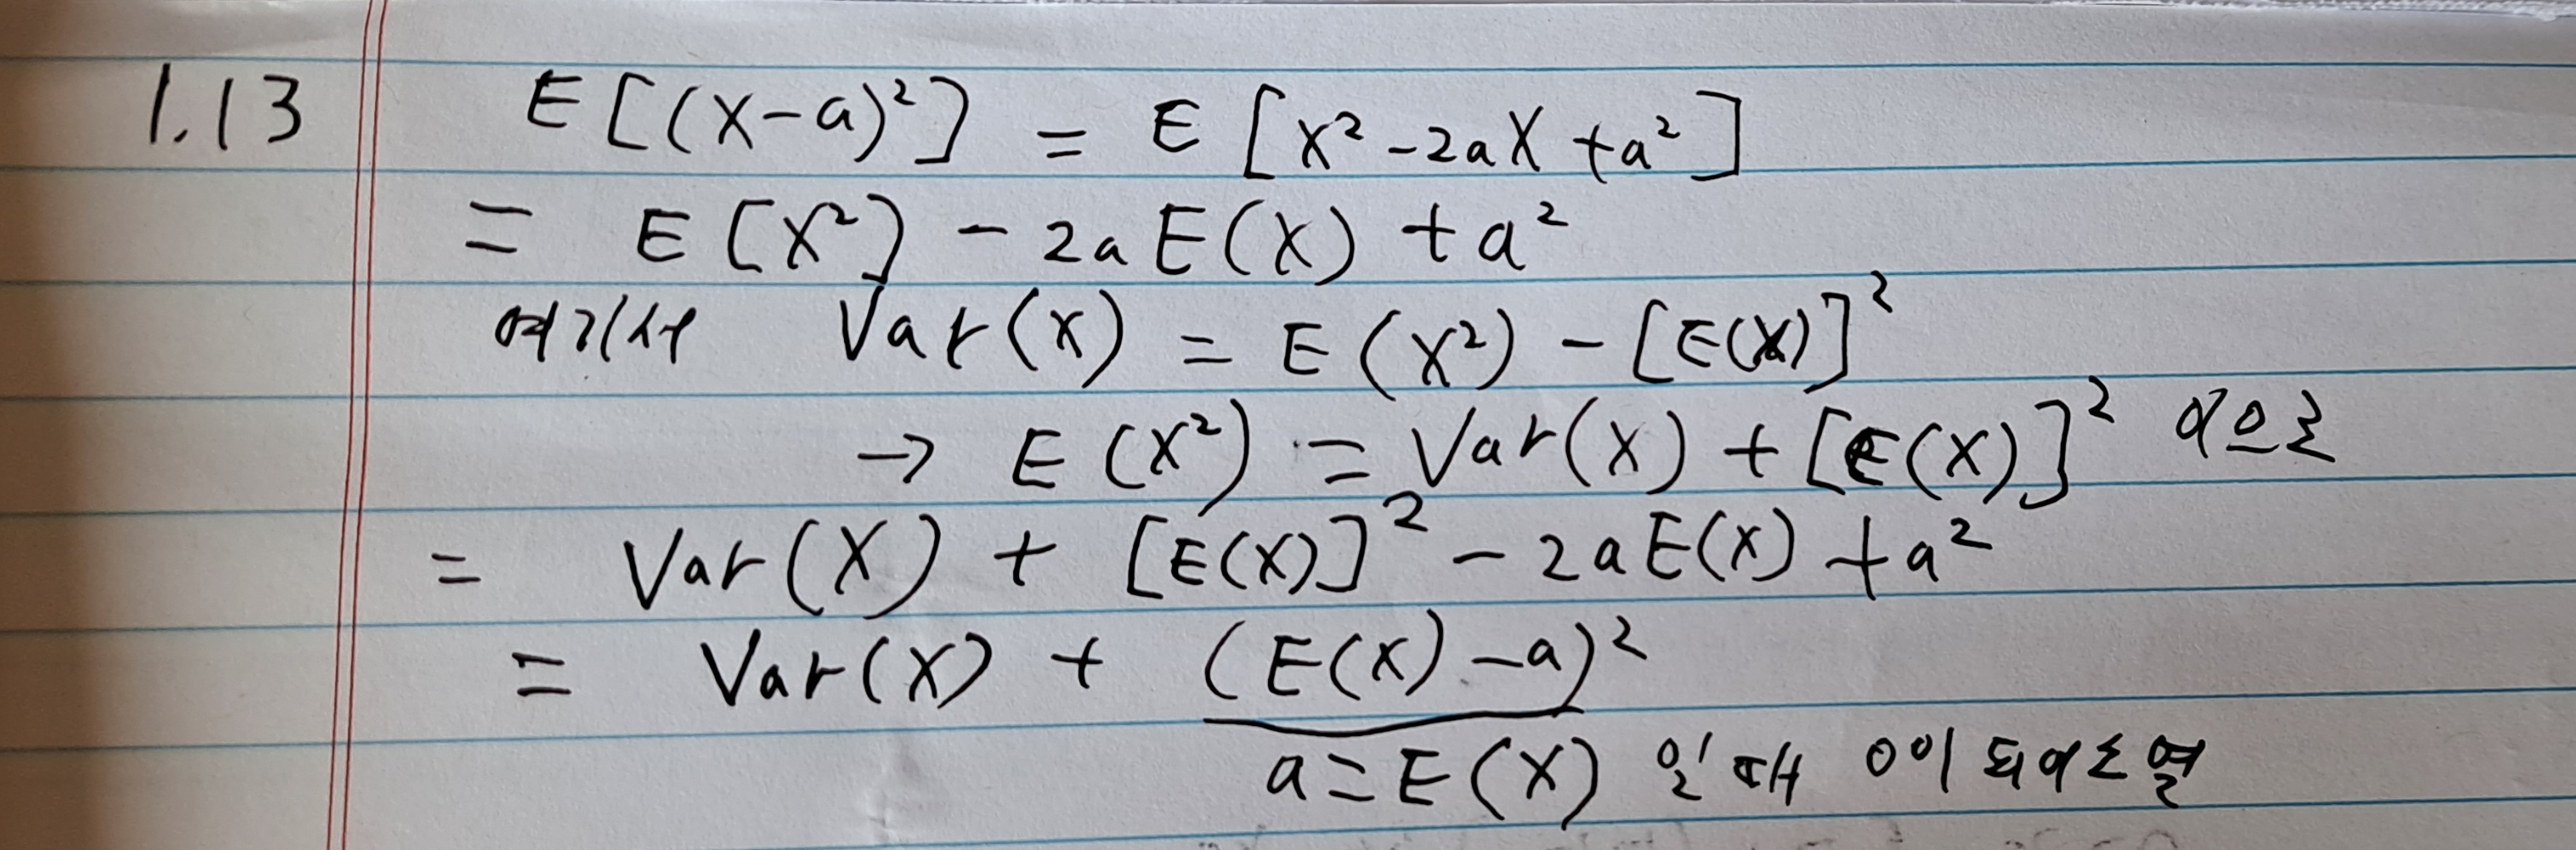 1.13 E[(X-a)²] = E[X²-2aX+a²]
= E[X²] - 2aE(X) + a²
여기서 Var(X) = E(X²) - [E(X)]²
→ E(X²) = Var(X) + [E(X)]² 이므로
= Var(X) + [E(X)]² - 2aE(X) + a²
= Var(X) + (E(X)-a)²
a=E(X) 일때 0이 되어